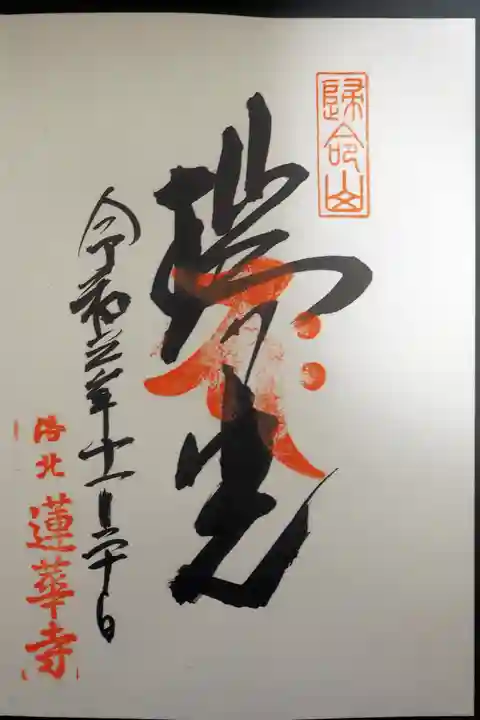 歸命山
瑞光
令和 年十一月 十日
洛北
蓮華寺